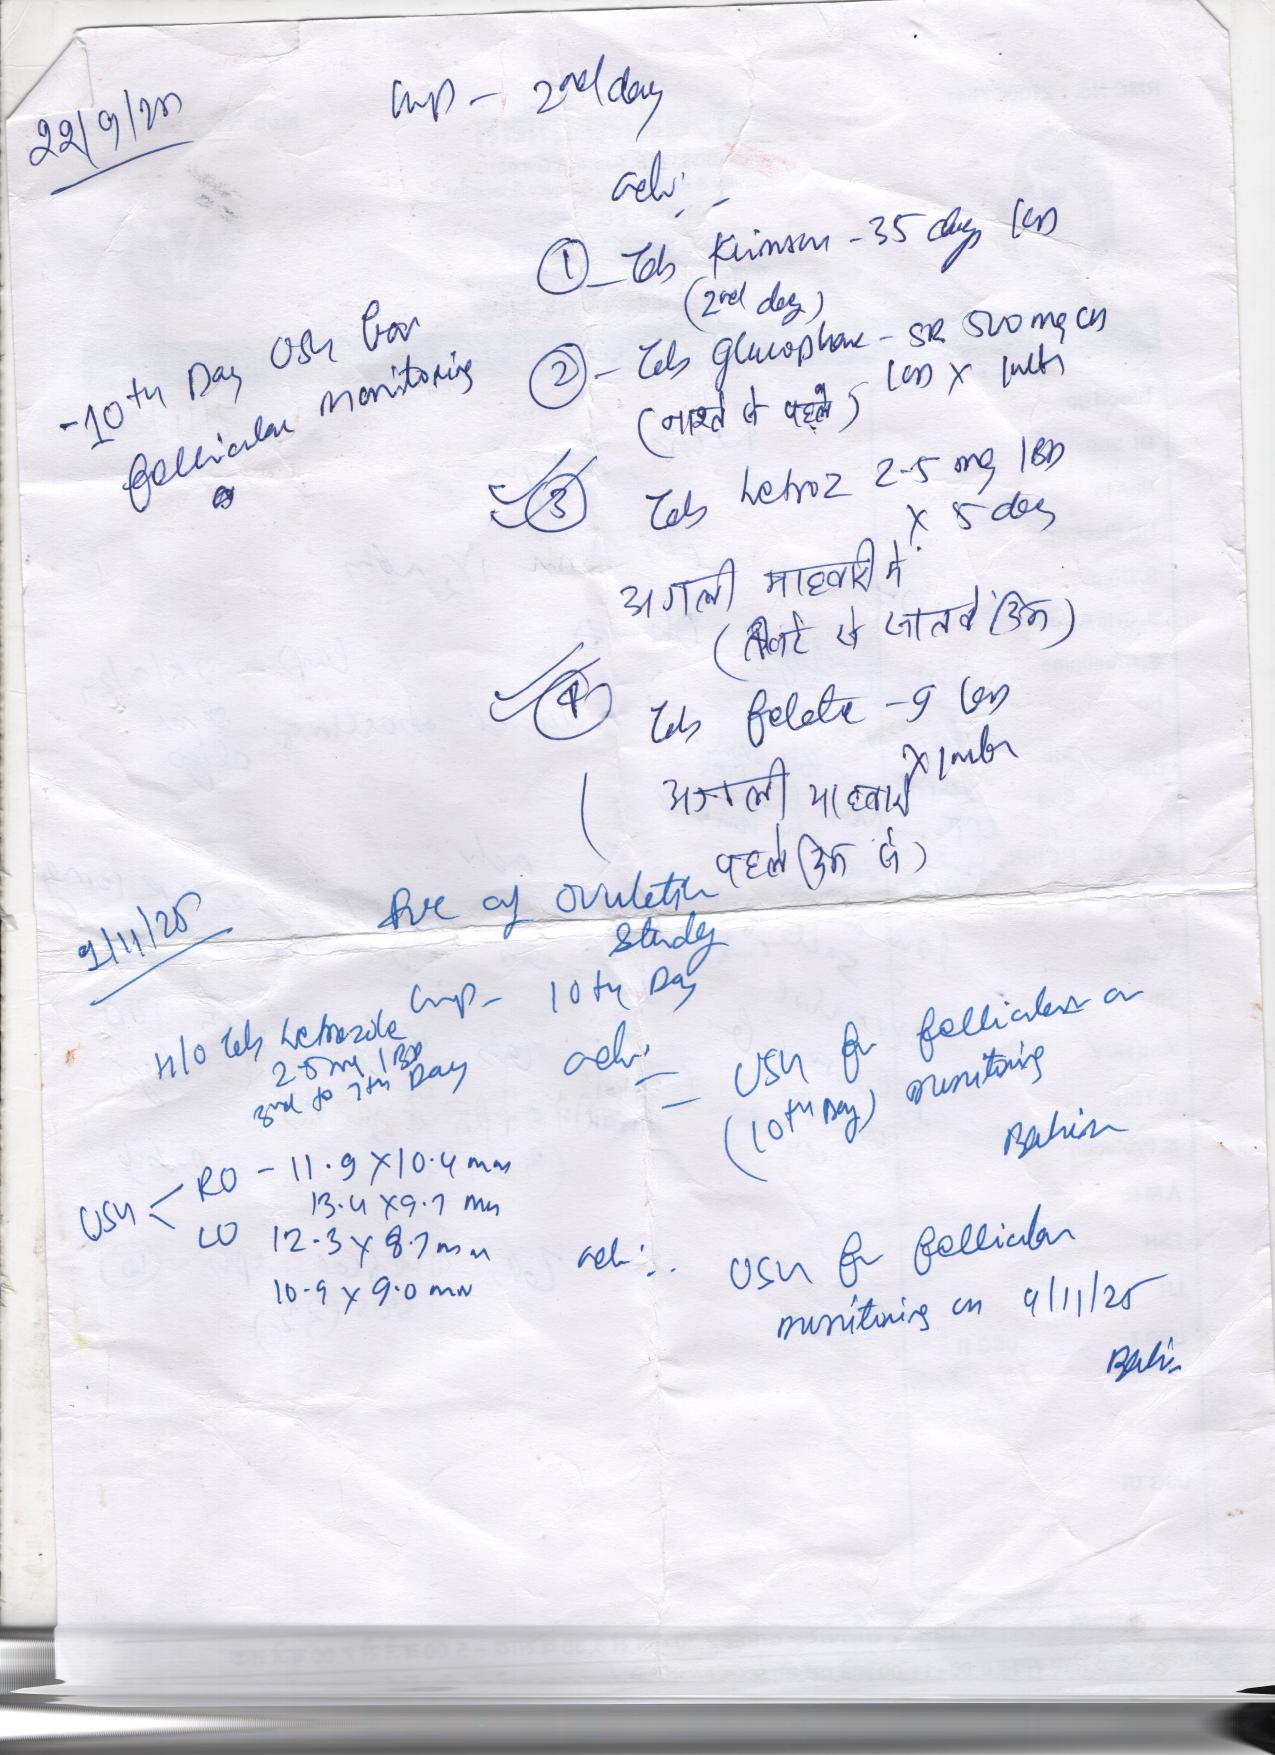 22/9/25
Lmp - 2nd day
adv:-
① - Tab Krimson - 35 days 1OD
(2nd day)
② - Tab glucophase - SR 500 mg
1OD X 1mth
(नाश्ते से पहले)
- 10th Day USG for
follicular monitoring
③ Tab Letroz 2.5 mg 1BD
X 5 day
अगली माहवारी में
(तीसरे से सातवें दिन)
④ Tab folate - 9 1OD
X 1mth
(अगली माहवारी
पहले दिन से)
9/11/25
of ovulation
study
Lmp - 10th Day
H/O Tab Letrozole
2.5 mg 1BD
3rd to 7th Day
adv:-
- USG for follicular
(10th Day) monitoring
USG < RO - 11.9 X 10.4 mm
13.4 X 9.7 mm
LO 12.3 X 8.7 mm
10.9 X 9.0 mm
adv:- USG for follicular
monitoring on 9/11/25